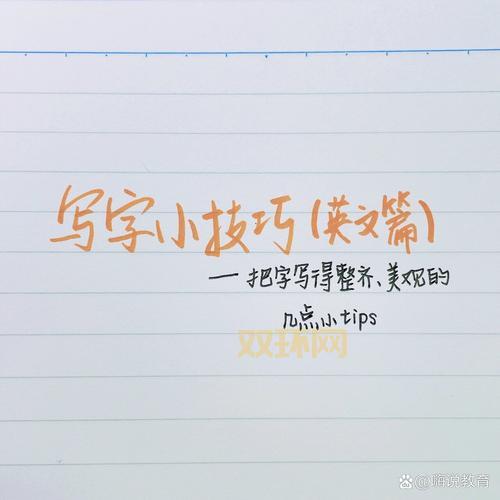 写字小技巧(英文篇)
一把字写得整齐、美观的
几点小tips
双环网
嗨说教育